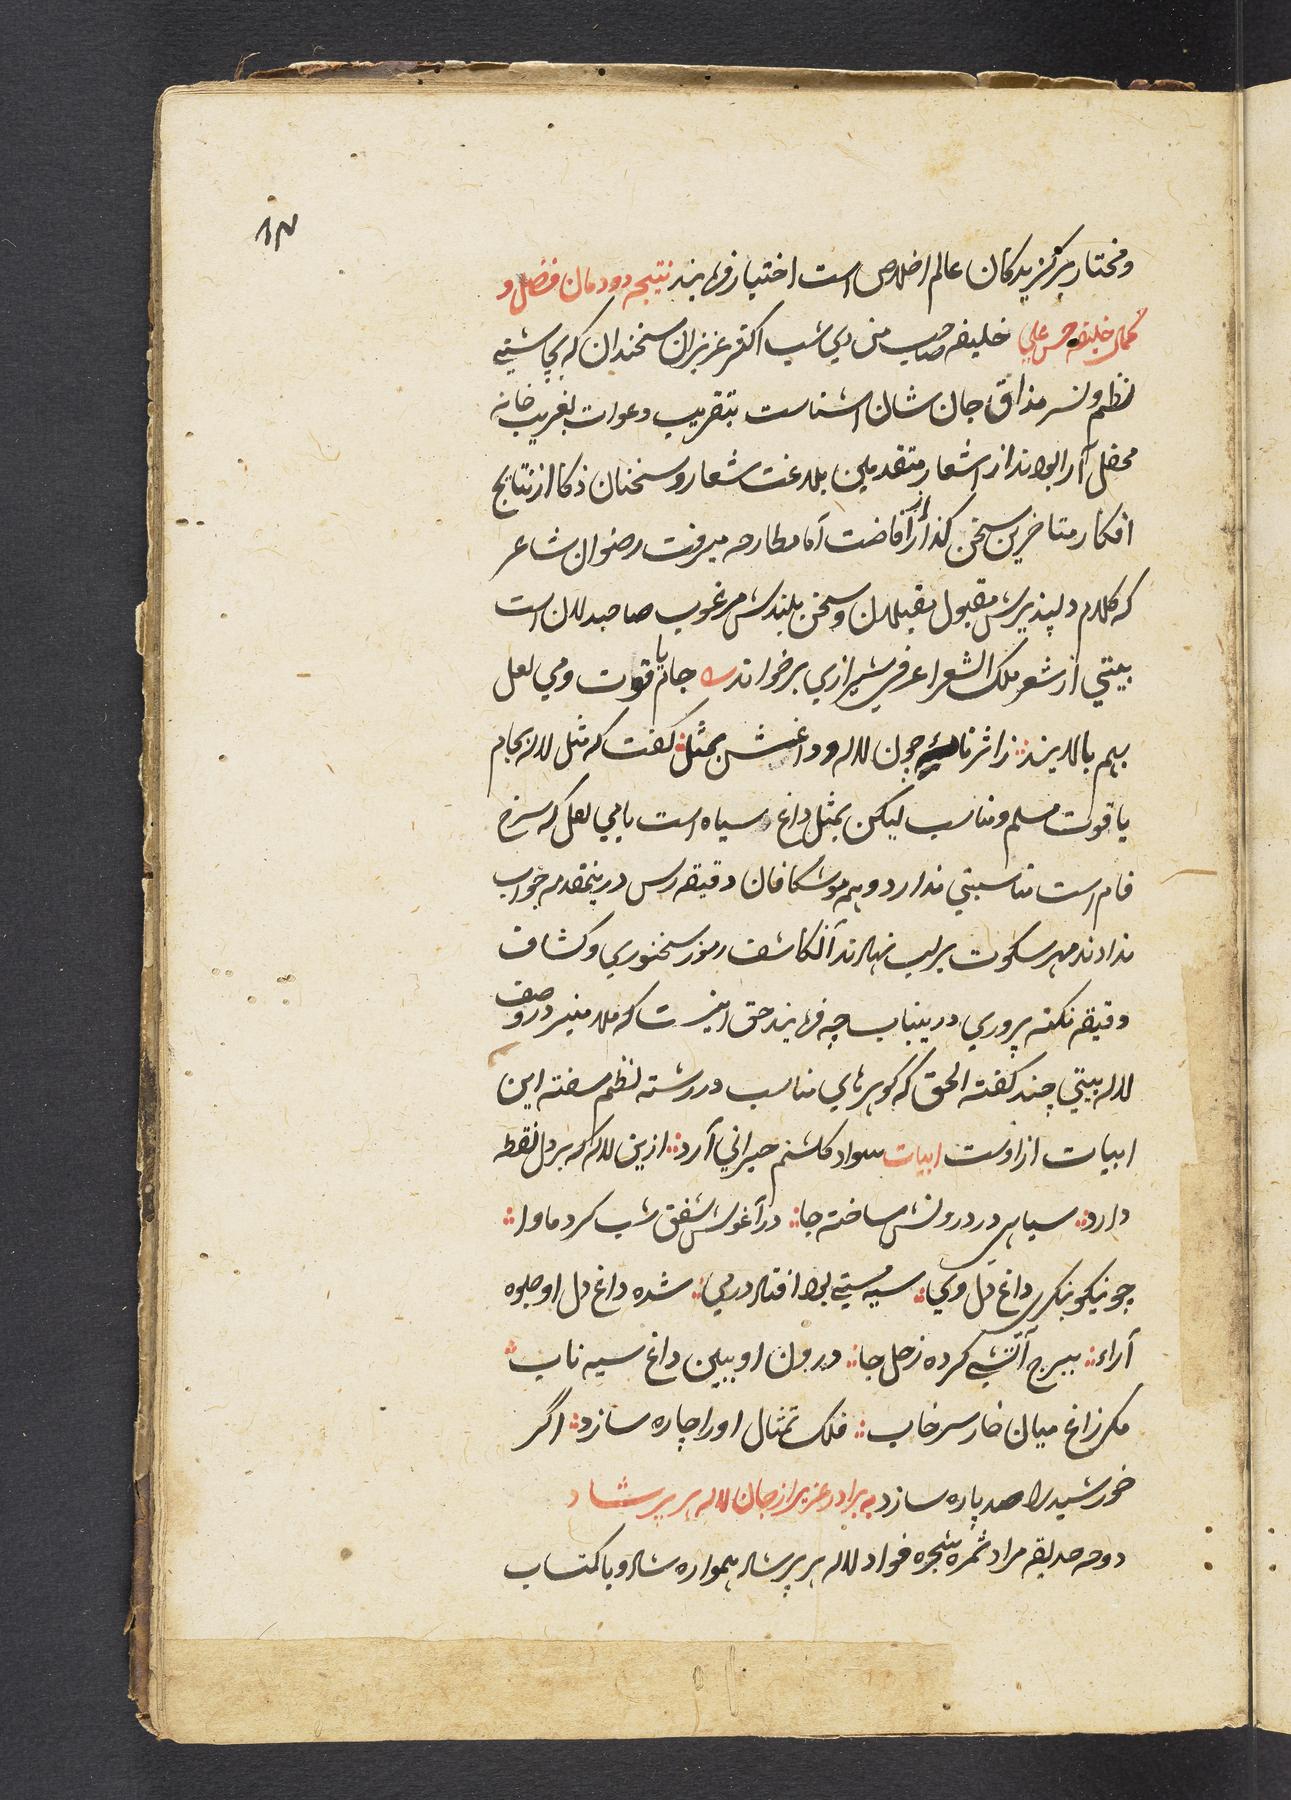 و مختار برگزیدگان عالم اخلاص است اختیار فرمایند نتیجه دودمان فضل و
کمال خلیفه حسن علی خلیفه صاحب من دی شب اکثر عزیزان سخندان که بچاشنی
نظم و نسر مذاق جان شان آشناست بتقریب دعوات بغریب خانه
محفل آرا بودند از اشعار متقدمین بلاغت شعار و سخنان ذکا از نتایج
افکار متاخرین سخن گذار از افاضت اما مطارحه میرفت رضوان شاعر
که کلام دلپذیرش مقبول مقبلان و سخن بلندش مرغوب صاحبدلان است
بیتی از شعر ملک الشعرا عرفی شیرازی برخواند جام یاقوت و می لعل
بهم بالایند ز اثر نامیه چون لاله و داغش بمثل گفت که مثل لاله بجام
یاقوت مسلم و مناسب لیکن بمثل داغ سیاه است بامی لعل که سرخ
فام است مناسبتی ندارد و همه موشکافان دقیقه رس درینمقدمه جواب
ندادند مهر سکوت بر لب نهادند آن کاشف رموز سخنوری و کشاف
دقیقه نکته پروری درینباب چه فرمایند حق اینست که ملا منیر در وصف
لاله بیتی چند گفته الحق که گوهرهای مناسب در رشته نظم سفته این
ابیات از اوست ابیات سواد گلشنم حیرانی آرد ازین لاله که بر دل نقطه
دارد سیاهی در درونش ساخته جا در آغوش شفق شب کرد ماوا
چو نیکو بنگری داغ دل وی سیه مستی بود افتاده در می شده داغ دل او جلوه
آراء ببرج آتشی کرده زحل جا درون او ببین داغ سیه ناب
مگر زاغ میان خار سرخاب فلک تمثال او را چاره سازد اگر
خورشید را صد پاره سازد به برادر عزیز از جان لاله هر پرشاد
دوحه حدیقه مراد ثمره شجره فواد لاله هر پرشاد همواره شاد و باکتساب